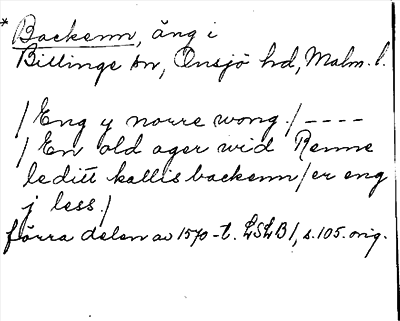 * Backenn, äng i
Billinge sn, Onsjö hd, Malm. l.
/ Eng y norre wong. / - - - -
/ En old ager wid Renne
leditt kallis backenn / er eng
j less. /
förra delen av 1570-t. LSLB 1, s. 105. orig.